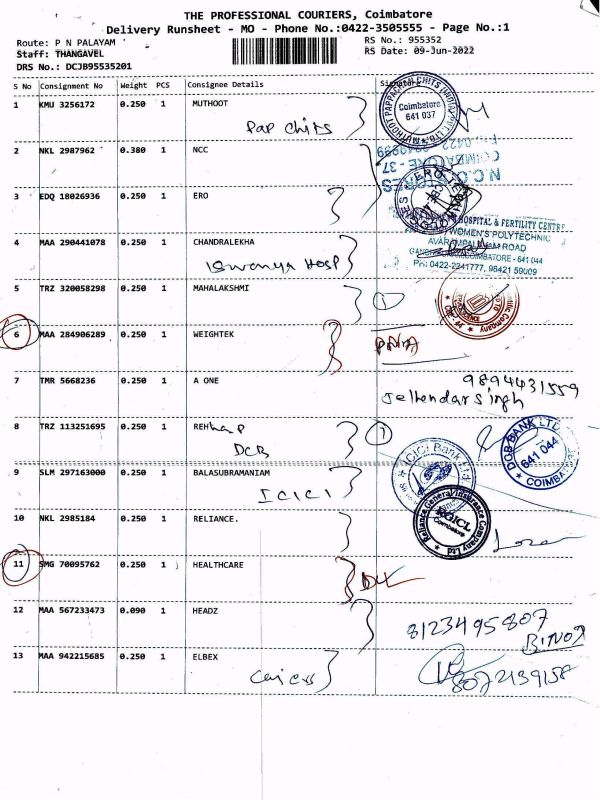 THE PROFESSIONAL COURIERS, Coimbatore
Delivery Runsheet - MO - Phone No.:0422-3505555 - Page No.:1
Route: P N PALAYAM
RS No.: 955352
Staff: THANGAVEL
RS Date: 09-Jun-2022
DRS No.: DCJB95535201
S No Consignment No Weight PCS Consignee Details Signature
1 KMU 3256172 0.250 1 MUTHOOT
Pap chits
Coimbatore
641 037
2 NKL 2987962 0.380 1 NCC
COIMBATORE - 37
3 EDQ 18026936 0.250 1 ERO
HOSPITAL & FERTILITY CENTRE
WOMEN'S POLYTECHNIC
4 MAA 290441078 0.250 1 CHANDRALEKHA
AVARAMPALAYAM ROAD
COIMBATORE - 641 044
Iswarya Hosp
PH: 0422-2241777, 98421 59009
5 TRZ 320058298 0.250 1 MAHALAKSHMI
6 MAA 284906289 0.250 1 WEIGHTEK
7 TMR 5668236 0.250 1 A ONE
9894431559
8 TRZ 113251695 0.250 1 REHhap
DCB
DCB BANK LTD
641 044
COIMBATORE
ICICI Bank Ltd
9 SLM 297163000 0.250 1 BALASUBRAMANIAM
ICICI
10 NKL 2985184 0.250 1 RELIANCE.
Reliance General Insurance Company Ltd
RGICL
Coimbatore
11 SMG 70095762 0.250 1 HEALTHCARE
DL
12 MAA 567233473 0.090 1 HEADZ
8123495807
BINOJ
13 MAA 942215685 0.250 1 ELBEX
8072139158